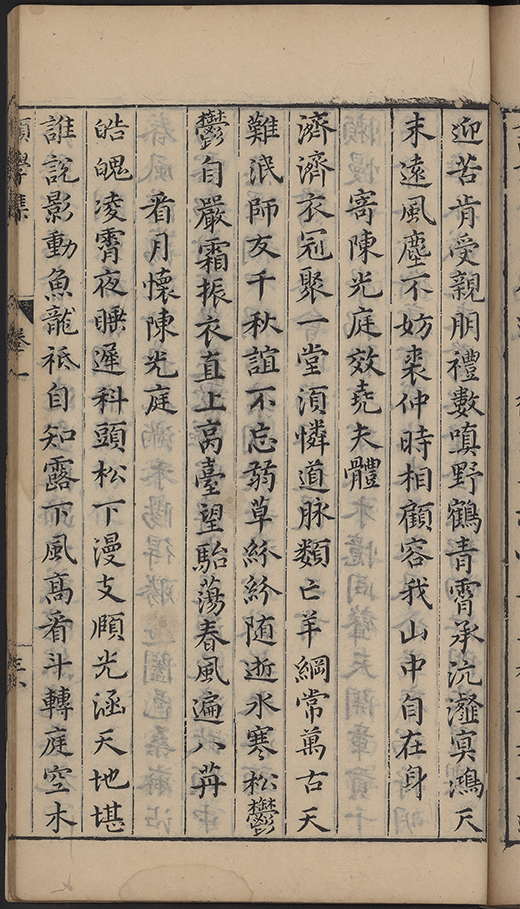 迎苦肯受親朋禮數嗔野鶴青霄承沆瀣冥鴻天
末遠風塵不妨裘仲時相顧容我山中自在身
寄陳光庭效堯夫體
濟濟衣冠聚一堂須憐道脉類亡羊綱常萬古天
難泯師友千秋誼不忘弱草紛紛随逝水寒松鬱
鬱自嚴霜振衣直上高臺望駘蕩春風遍八荓
看月懷陳光庭
皓魄凌霄夜睡遲科頭松下漫支頤光涵天地堪
誰說影動魚龍祗自知露下風高看斗轉庭空木
學集
卷一